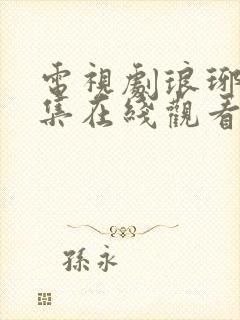 電視劇琅琊
集在綫觀看
孫永